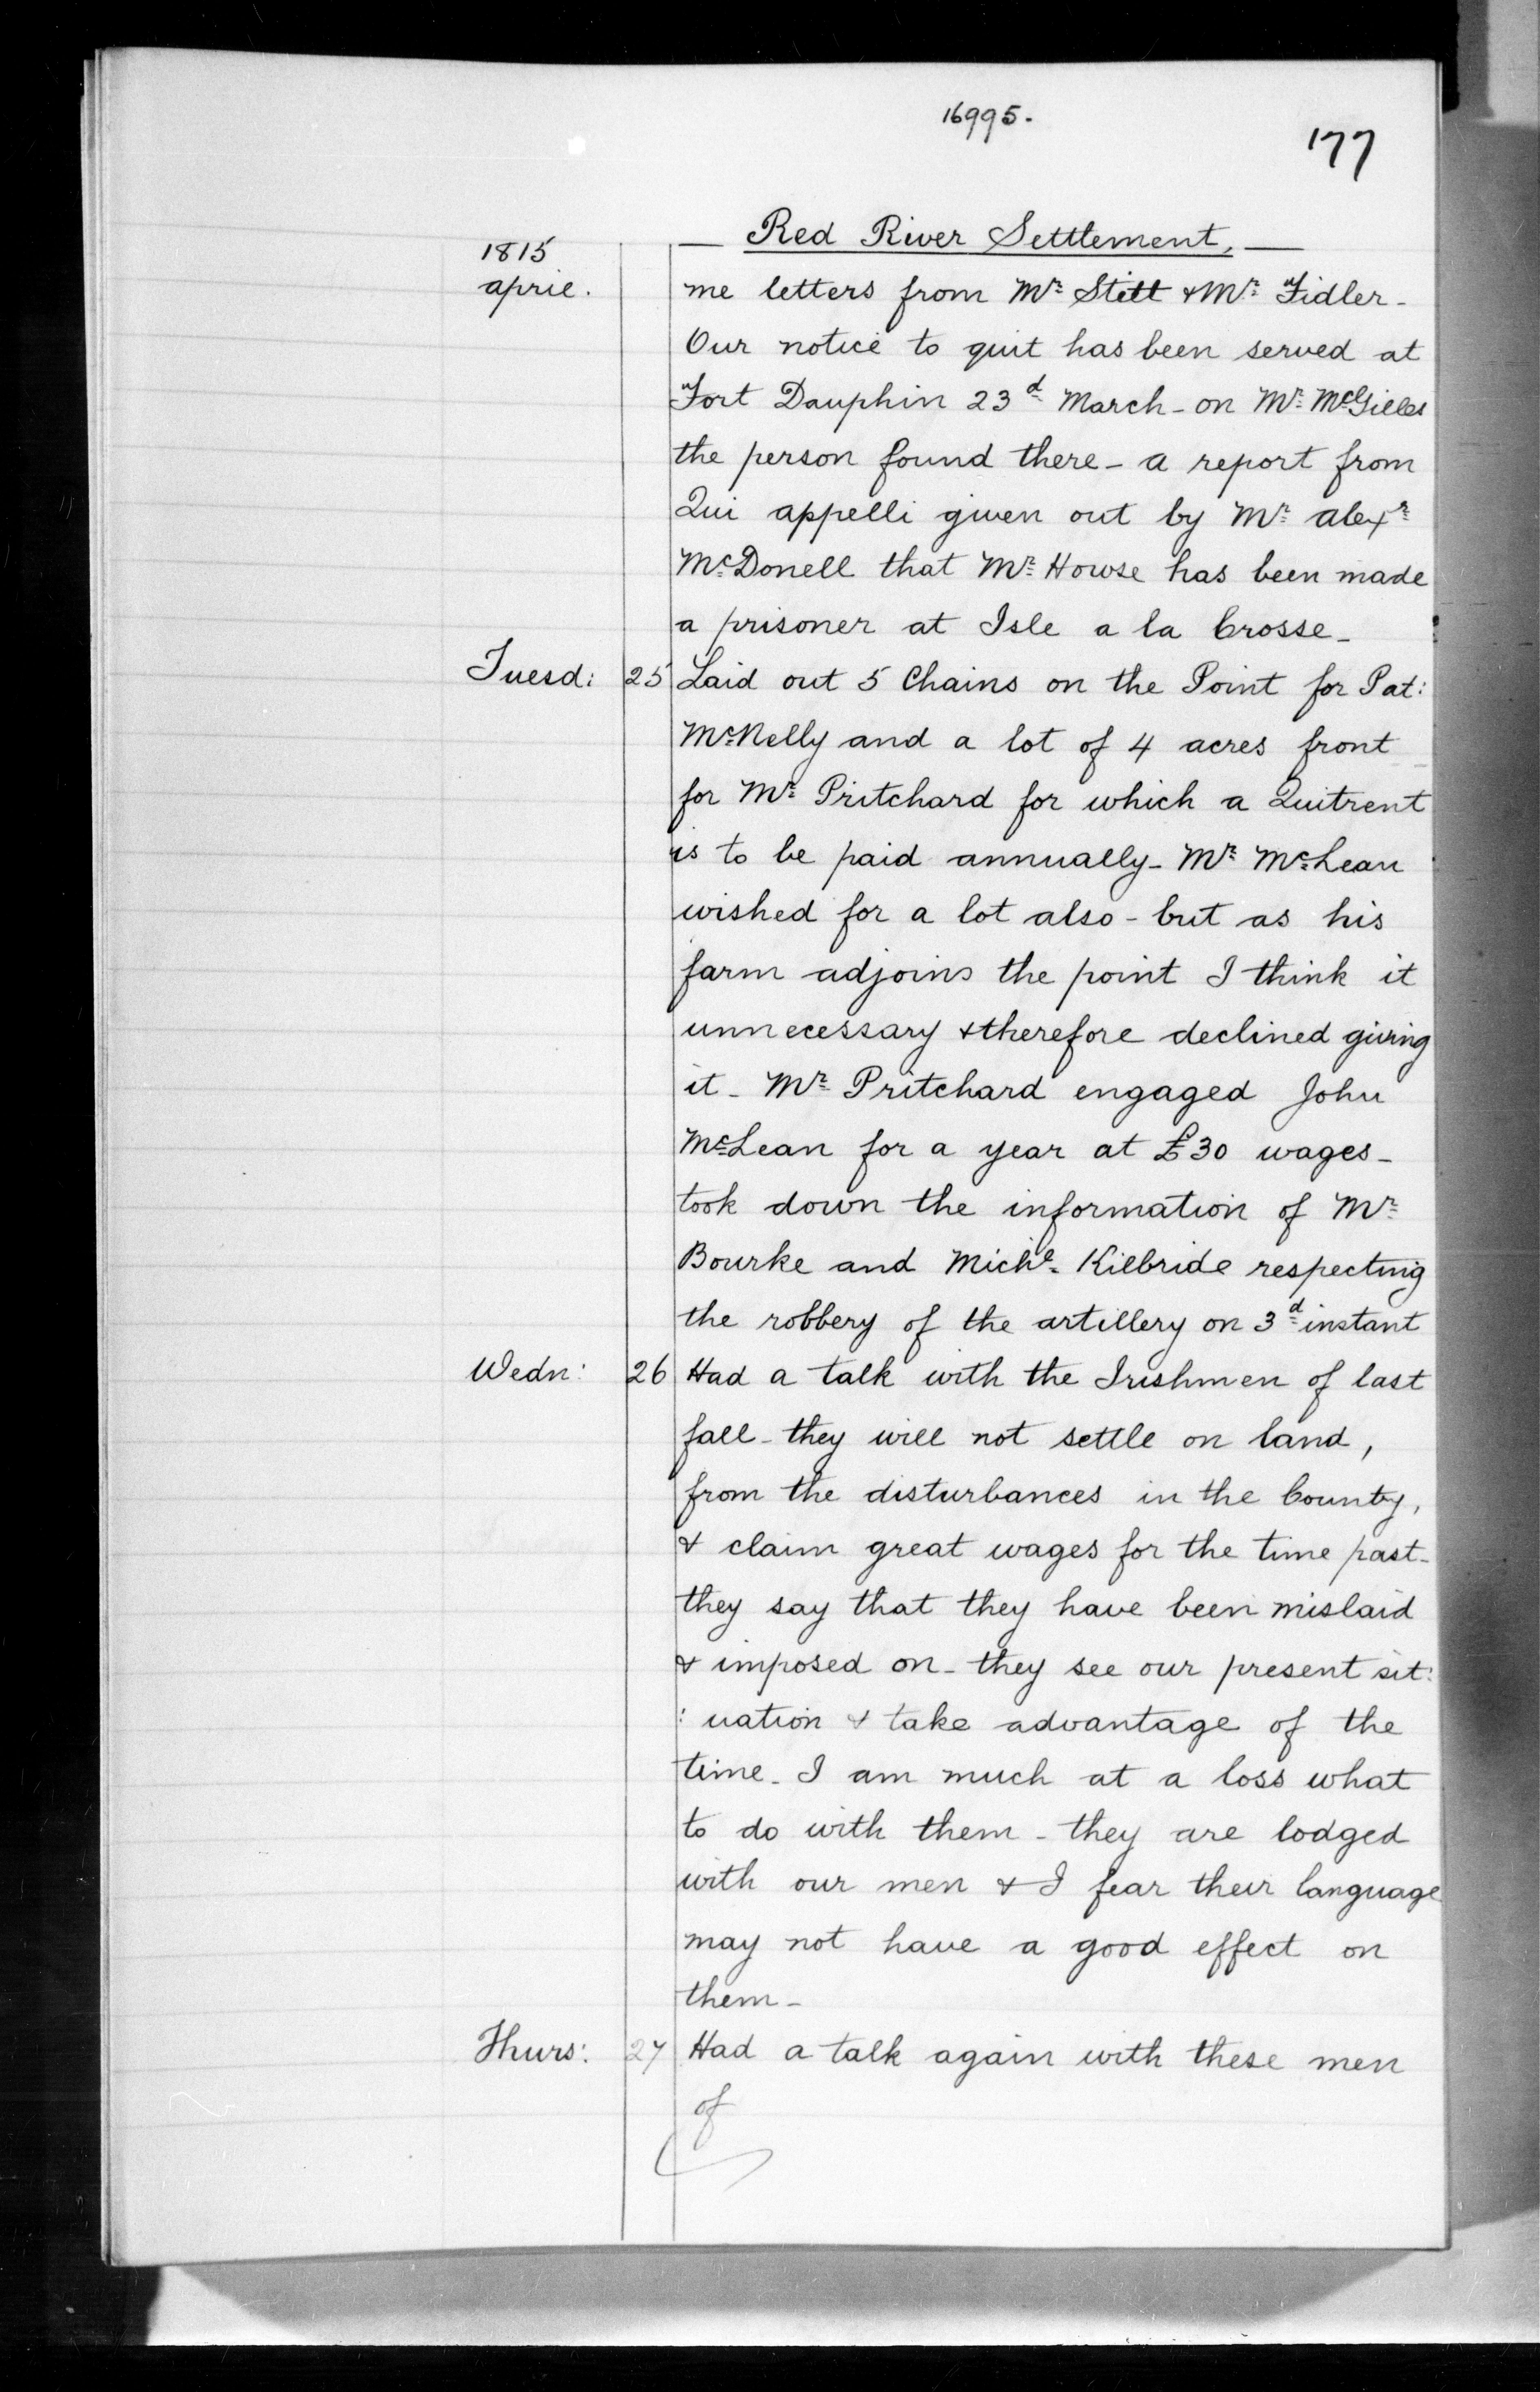 16995.
177
— Red River Settlement, —
1815
april.
me letters from Mr. Stett & Mr. Fidler -
Our notice to quit has been served at
Fort Dauphin 23d March - on Mr. McGilles
the person found there - a report from
Qui appelli given out by Mr. alexr.
McDonell that Mr. Howse has been made
a prisoner at Isle a la Crosse -
Tuesd: 25 Laid out 5 Chains on the Point for Pat:
McNelly and a lot of 4 acres front
for Mr. Pritchard for which a Quitrent
is to be paid annually - Mr. McLean
wished for a lot also - but as his
farm adjoins the point I think it
unnecessary & therefore declined giving
it - Mr. Pritchard engaged John
McLean for a year at £30 wages -
took down the information of Mr.
Bourke and Michl. Kilbride respecting
the robbery of the artillery on 3d instant
Wedn: 26 Had a talk with the Irishmen of last
fall - they will not settle on land,
from the disturbances in the County,
& claim great wages for the time past -
they say that they have been mislaid
& imposed on - they see our present sit:
: uation & take advantage of the
time - I am much at a loss what
to do with them - they are lodged
with our men & I fear their language
may not have a good effect on
them -
Thurs: 27 Had a talk again with these men
of